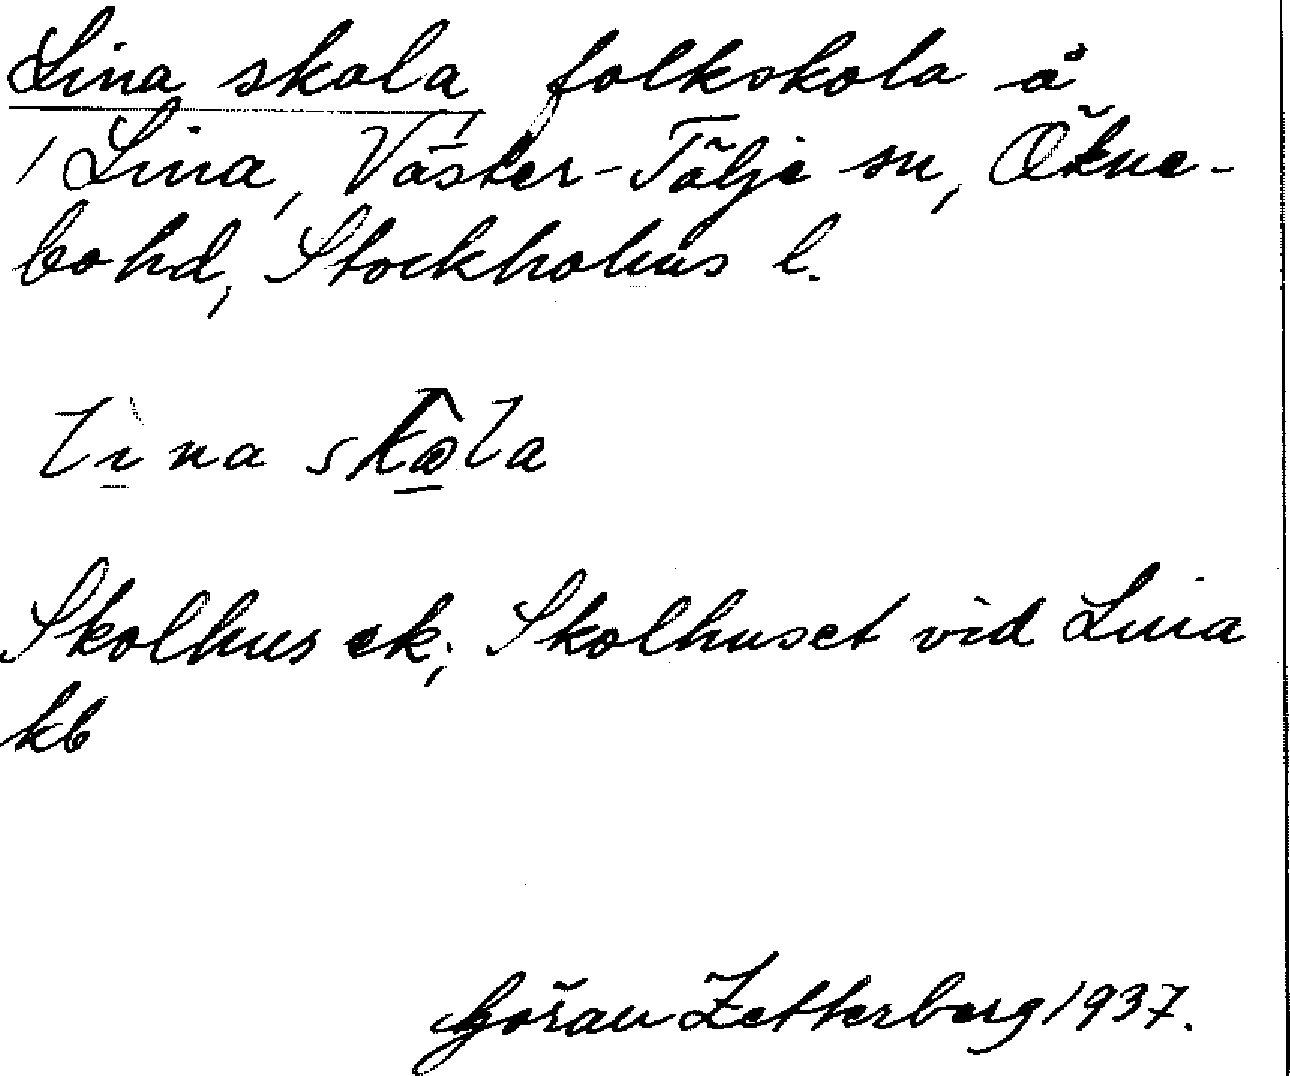 Lina skola folkskola å
1 Lina, Väster-Tälje sn, Ökne-
bo hd, Stockholms l.
Lìna skôla
Skolhus ek; Skolhuset vid Lina
kb
Göran Zetterberg 1937.